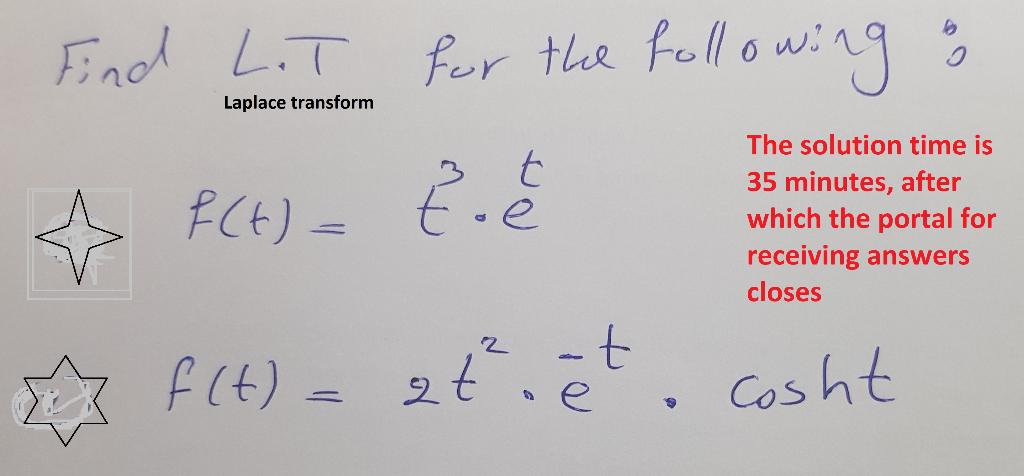 Find L.T for the following :
Laplace transform
The solution time is
35 minutes, after
which the portal for
receiving answers
closes
f(t) = t³ . eᵗ
f(t) = 2t² . e⁻ᵗ . cosht